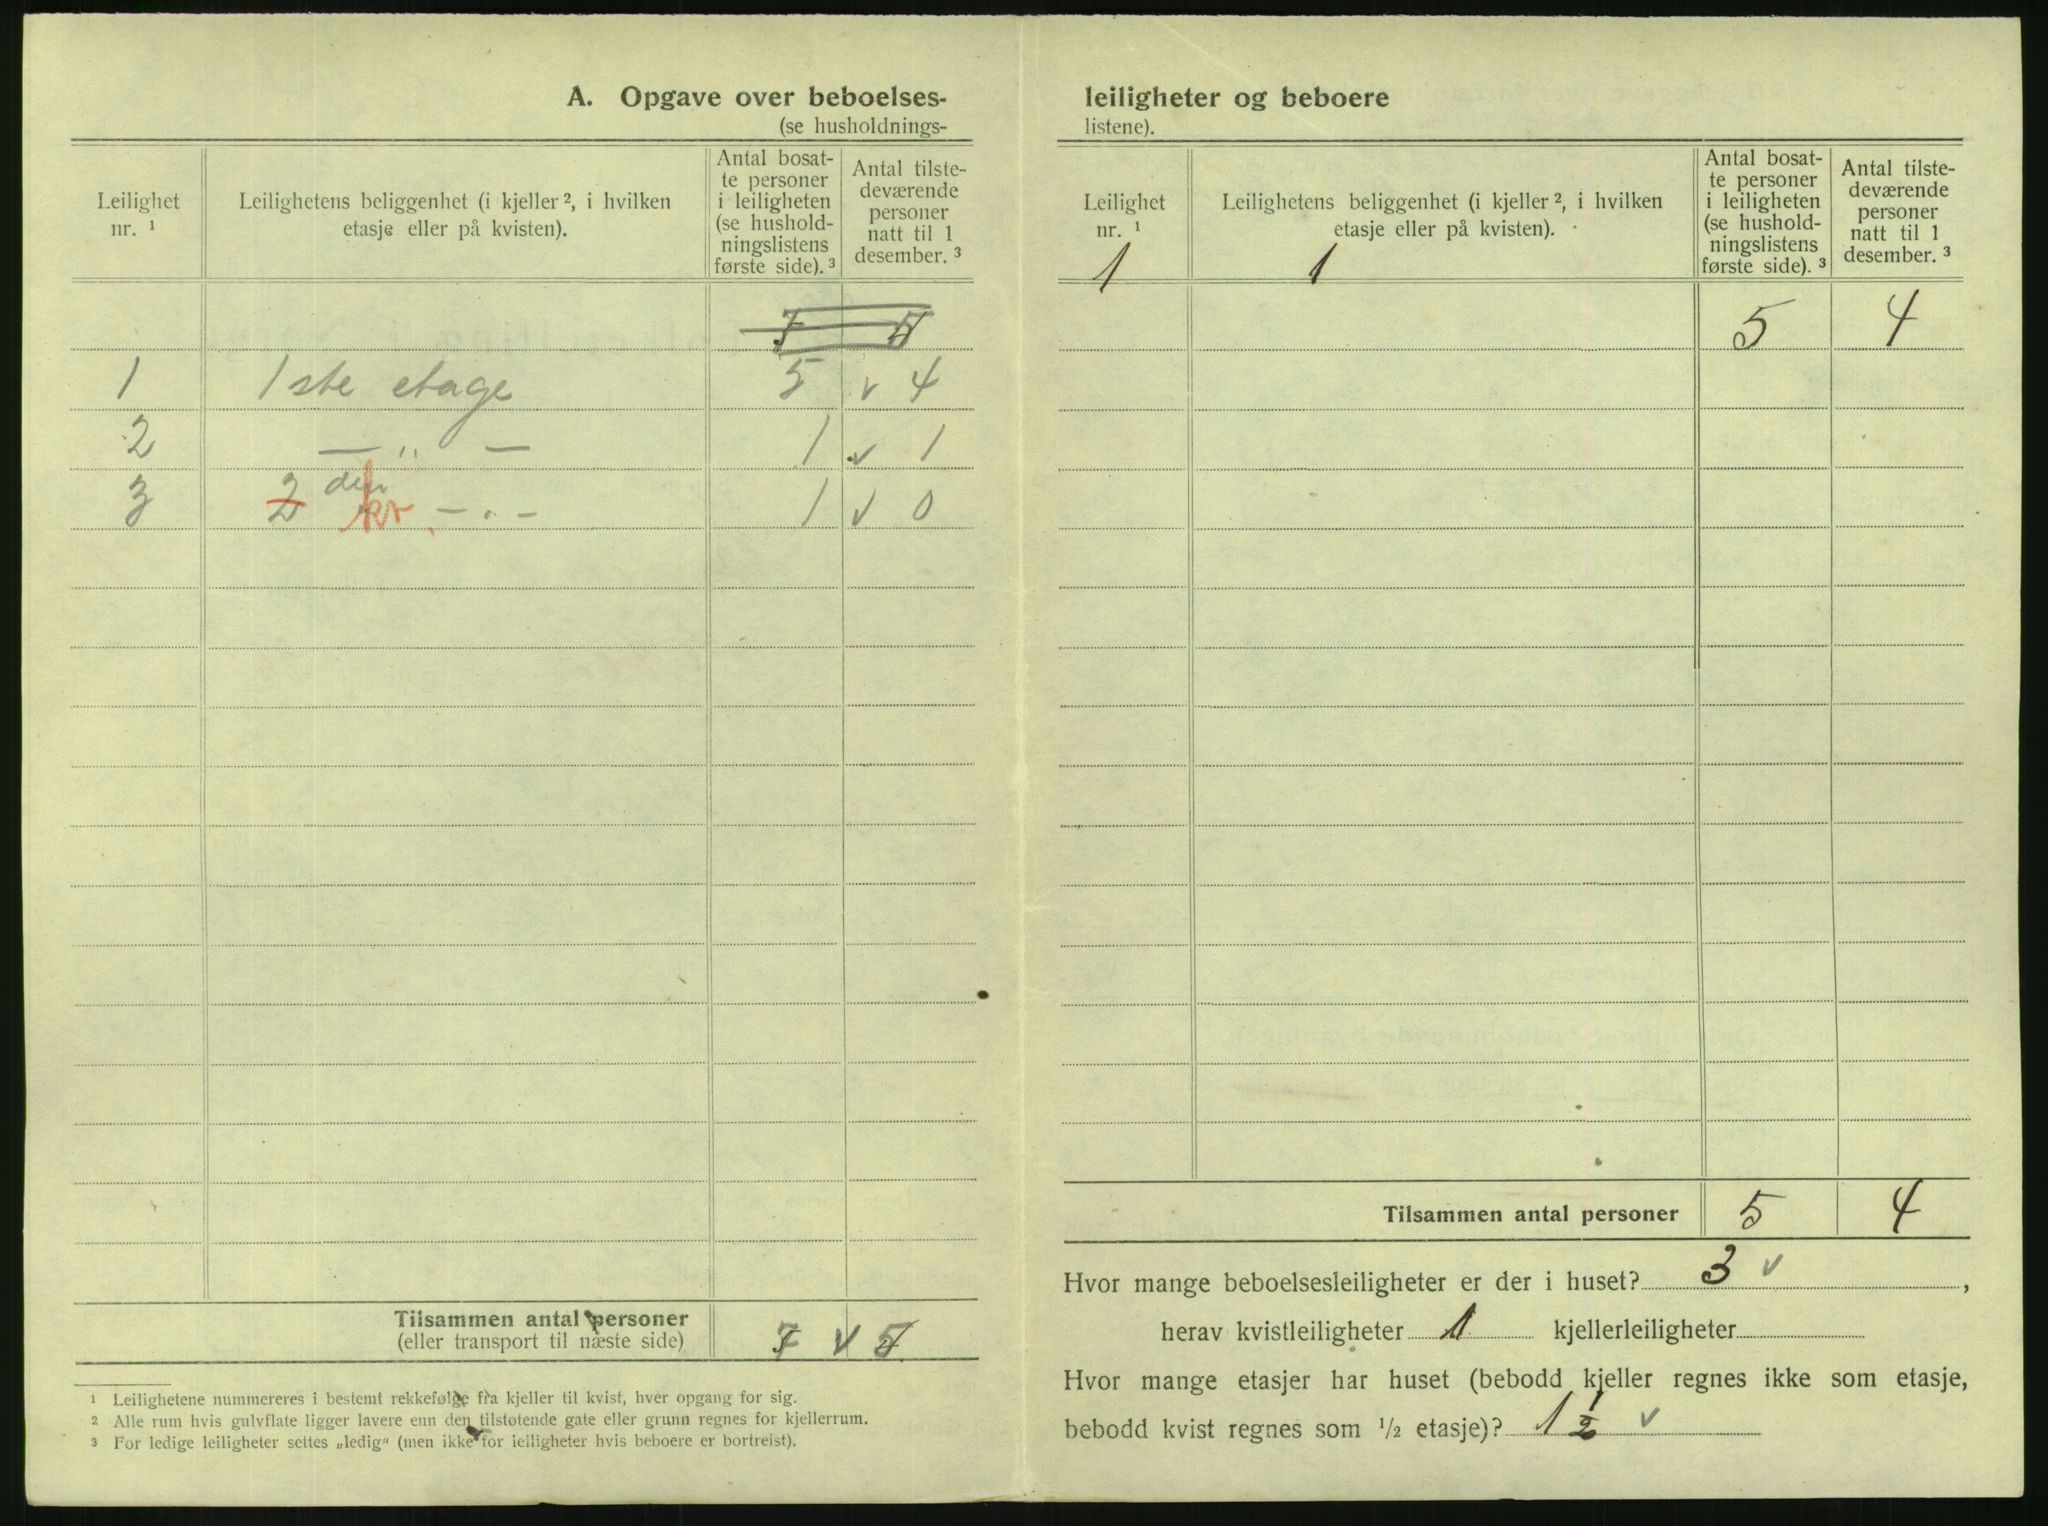 A. Opgave over beboelses-
(se husholdnings-
Leilighet nr. ¹
Leilighetens beliggenhet (i kjeller ², i hvilken etasje eller på kvisten).
Antal bosat-
te personer
i leiligheten
(se hushold-
ningslistens
første side). ³
Antal tilste-
deværende
personer
natt til 1
desember. ³
7 5
1 1ste etage 5 v 4
2 — " — 1 v 1
3 2 den kr. — . — 1 v 0
Tilsammen antal personer
(eller transport til næste side) 7 v 5
¹ Leilighetene nummereres i bestemt rekkefølge fra kjeller til kvist, hver opgang for sig.
² Alle rum hvis gulvflate ligger lavere enn den tilstøtende gate eller grunn regnes for kjellerrum.
³ For ledige leiligheter settes „ledig“ (men ikke for leiligheter hvis beboere er bortreist).
leiligheter og beboere
listene).
Leilighet nr. ¹
Leilighetens beliggenhet (i kjeller ², i hvilken etasje eller på kvisten).
Antal bosat-
te personer
i leiligheten
(se hushold-
ningslistens
første side). ³
Antal tilste-
deværende
personer
natt til 1
desember. ³
1 1
5 4
Tilsammen antal personer 5 4
Hvor mange beboelsesleiligheter er der i huset? 3 v ,
herav kvistleiligheter 1 kjellerleiligheter
Hvor mange etasjer har huset (bebodd kjeller regnes ikke som etasje,
bebodd kvist regnes som ½ etasje)? 1 ½ v